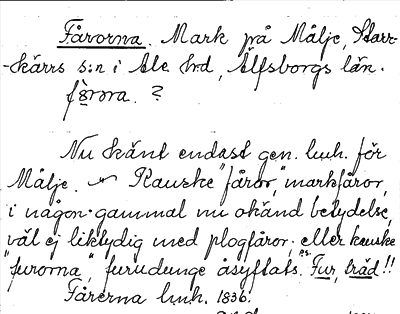 Fårorna. Mark på Målje, Starr-
-kärrs s:n i Ale hrd, Älfsborgs län.
fårơra. ?
Nu känt endast gen. lmh. för
Målje. Kanske "fåror," markfåror,
i någon gammal nu okänd betydelse,
väl ej liktydig med plogfåror; eller kanske
"furorna", furudunge åsyftats. Fur, träd!!
Fårerna lmh. 1836.